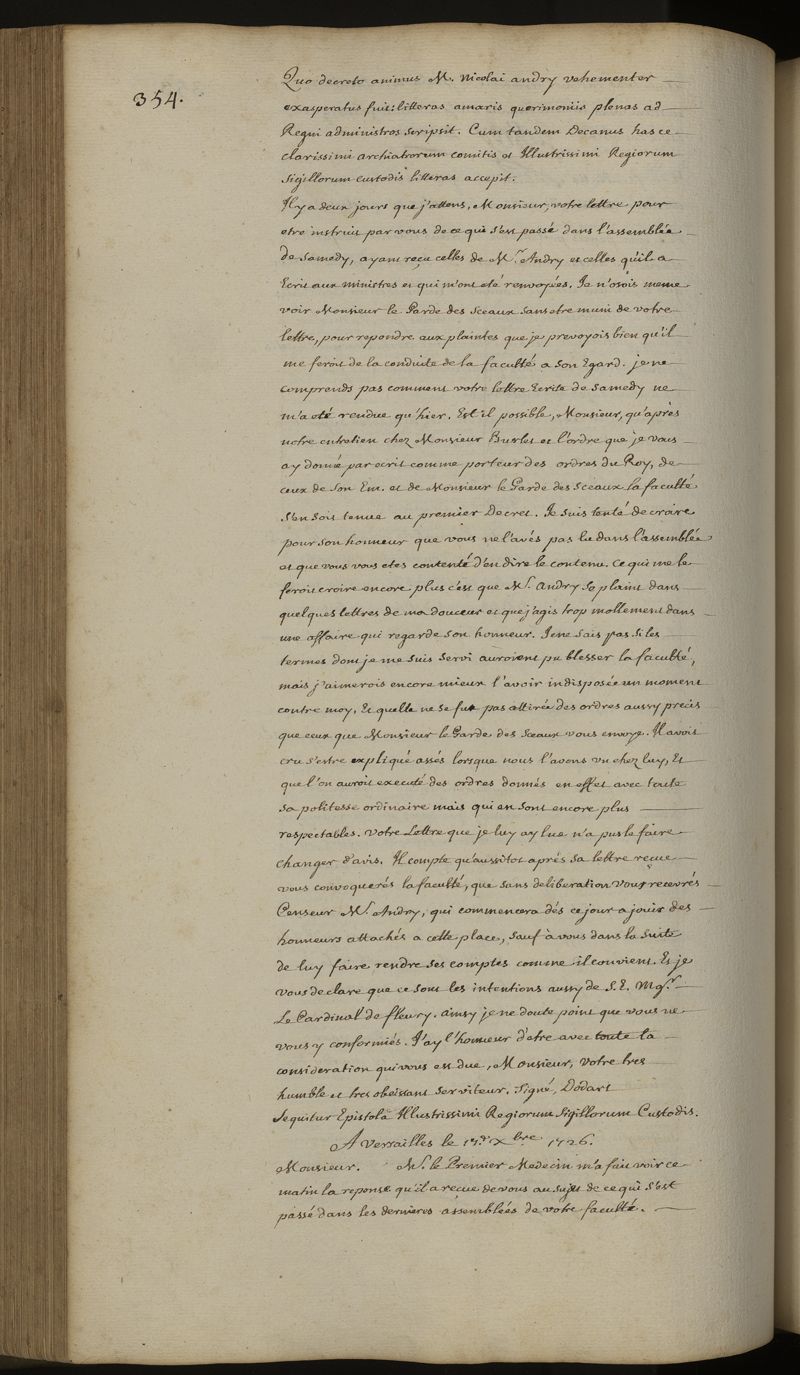 354.
Quo decreto animus M. Nicolai andry vehementer
exasperatus fuit: litteras amaris querimoniis plenas ad
Regni administros scripsit. Cum tandem Decanus hasce
clarissimi archiatrorum comitis et Illustrissimi Regiorum
Sigillorum custodis litteras accepit.
Il y a deux jours que j'attens, Monsieur, votre lettre pour
etre instruit par vous de ce qui s'est passé dans l'assemblée
de Samedy, ayant reçu celles de Mr. Andry et celles qu'il a
Ecrit aux ministres et qui m'ont eté renvoyées. Je n'osois meme
voir Monsieur le Garde des Sceaux sans etre muni de votre
lettre, pour repondre aux plaintes que je prevoyois bien qu'il
me feroit de la conduite de la faculté a son Egard. je ne
comprends pas comment votre lettre Ecrite de Samedy ne
m'a eté rendue qu'hier. Est il possible, Monsieur, qu'après
notre entretien chez Monsieur Burlet et l'ordre que je vous
ay donné par ecrit comme porteur des ordres du Roy, de
ceux de Son Em. et de Monsieur le Garde des Sceaux la faculté
s'en soit tenue au premier Decret. Je suis tenté de croire
pour son honneur que vous ne l'avés pas lu dans l'assemblée
et que vous vous etes contenté d'en dire le contenu. Ce qui me le
feroit croire encore plus c'est que Mr. Andry se plaint dans
quelques lettres de ma douceur et que j'agis trop mollement dans
une affaire qui regarde son honneur. Je ne sais pas si les
termes dont je me suis servi auroient pu blesser la faculté,
mais j'aimerois encore mieux l'avoir indisposée un moment
contre moy, Et quelle ne se fut pas attirée des ordres aussy precis
que ceux que Monsieur le Garde des Sceaux vous envoye. Il avoit
cru s'estre expliqué assés lorsque nous l'avons vu chez luy, Et
que l'on auroit executé des ordres donnés en effet avec toute
sa politesse ordinaire mais qui en sont encore plus
respectables. Votre Lettre que je luy ay lue n'a pus le faire
changer d'avis. Il compte qu'aussitot aprés sa lettre reçue
vous convoquerés la faculté, que sans deliberation vous recevrés
Censeur Mr. Andry, qui commencera dés ce jour a jouir des
honneurs attachés a cette place, Sauf à vous dans la suite
de luy faire rendre ses comptes comme il convient. Et je
vous declare que ce sont les intentions aussy de S. E. Mgr.
Le Cardinal de fleury. ainsy je ne doute point que vous ne
vous y conformiés. J'ay l'honneur d'etre avec toute la
consideration qui vous est due, Monsieur, Votre tres
humble et tres obeissant serviteur. Signé, Dodart
Sequitur Epistola Illustrissimi Regiorum Sigillorum Custodis.
A Versailles le Xbre 1726.
Monsieur. Mr. le Premier Medecin m'a fait voir ce
matin la reponse qu'il a recue de vous au sujet de ce qui s'est
passé dans les dernieres assemblées de votre faculté.